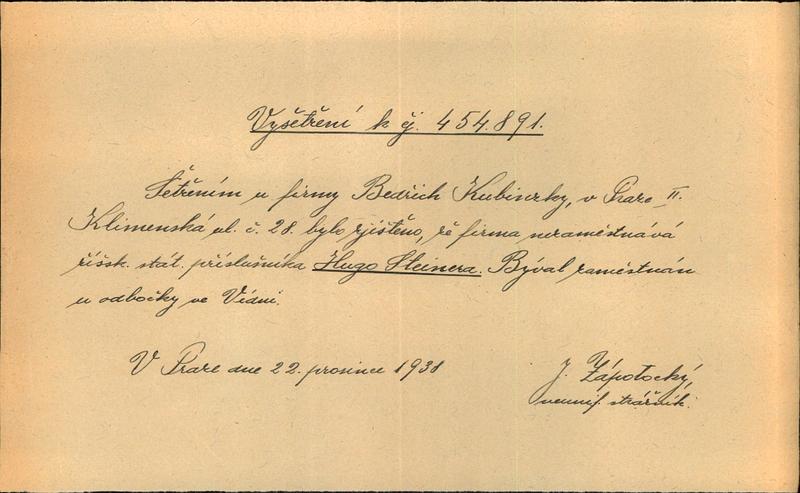 Vyšetření k čj. 454.891.
Šetřením u firmy Bedřich Kubinzky, v Praze II.
Klimenská ul. č. 28. bylo zjištěno, že firma nezaměstnává
říšsk. stát. příslušníka Hugo Steinera. Býval zaměstnán
u odbočky ve Vídni.
V Praze dne 22. prosince 1938
J. Zápotocký,
neunif. strážník.